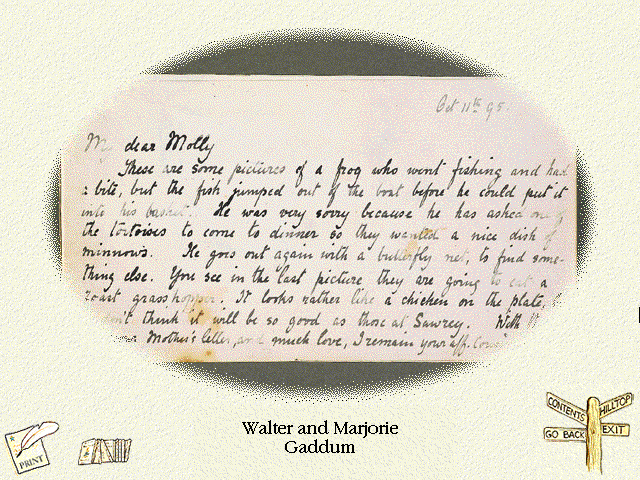 Oct 11th 95.
My dear Molly
These are some pictures of a frog who went fishing and had
a bite, but the fish jumped out of the boat before he could put it
into his basket. He was very sorry because he has asked
the tortoises to come to dinner so they wanted a nice dish of
minnows. He goes out again with a butterfly net, to find some-
thing else. You see in the last picture they are going to eat a
roast grasshopper. It looks rather like a chicken on the plate,
think it will be so good as those at Sawrey. With
Mother's letter, and much love, I remain your aff.
Walter and Marjorie
Gaddum
PRINT
CONTENTS
HILLTOP
GO BACK
EXIT